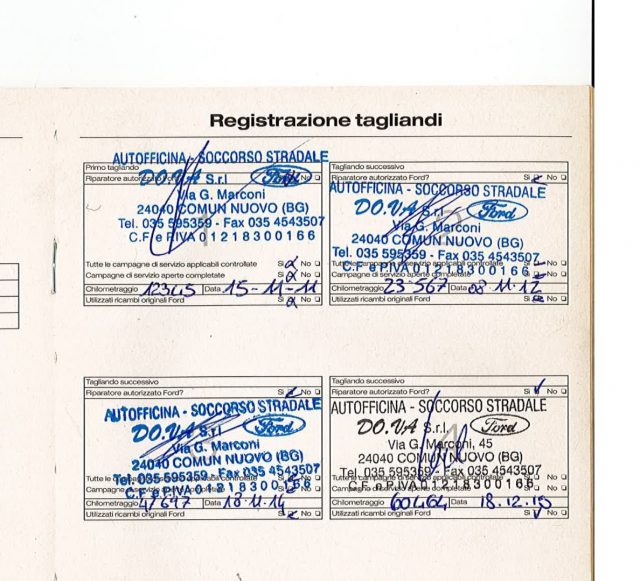 Registrazione tagliandi
Primo tagliando
AUTOFFICINA - SOCCORSO STRADALE
Riparatore autorizzato Ford? No
DO.VA S.r.l Ford
Via G. Marconi
24040 COMUN NUOVO (BG)
Tel. 035 595359 - Fax 035 4543507
C.F e P.IVA 01218300166
Tutte le campagne di servizio applicabili controllate Sì No
Campagne di servizio aperte completate Sì No
Chilometraggio 12345 Data 15-11-11
Utilizzati ricambi originali Ford Sì No
Tagliando successivo
Riparatore autorizzato Ford? Sì No
AUTOFFICINA - SOCCORSO STRADALE
DO.VA S.r.l Ford
Via G. Marconi
24040 COMUN NUOVO (BG)
Tel. 035 595359 - Fax 035 4543507
C.F e P.IVA 01218300166
Campagne di servizio aperte completate No
Chilometraggio 23 567 Data 08 11.12
Utilizzati ricambi originali Ford Sì No
Tagliando successivo
Riparatore autorizzato Ford? Sì No
AUTOFFICINA - SOCCORSO STRADALE
DO.VA S.r.l Ford
Via G. Marconi
24040 COMUN NUOVO (BG)
Tel. 035 595359 - Fax 035 4543507
C.F e P.IVA 01218300166
Chilometraggio Data 18.11.14
Utilizzati ricambi originali Ford Sì No
Tagliando successivo
Riparatore autorizzato Ford? Sì No
AUTOFFICINA - SOCCORSO STRADALE
DO.VA S.r.l Ford
Via G. Marconi, 45
24040 COMUN NUOVO (BG)
Tel. 035 595359 - Fax 035 4543507
C.F e P.IVA 01218300166
Chilometraggio 60464 Data 18.12.15
Utilizzati ricambi originali Ford Sì No